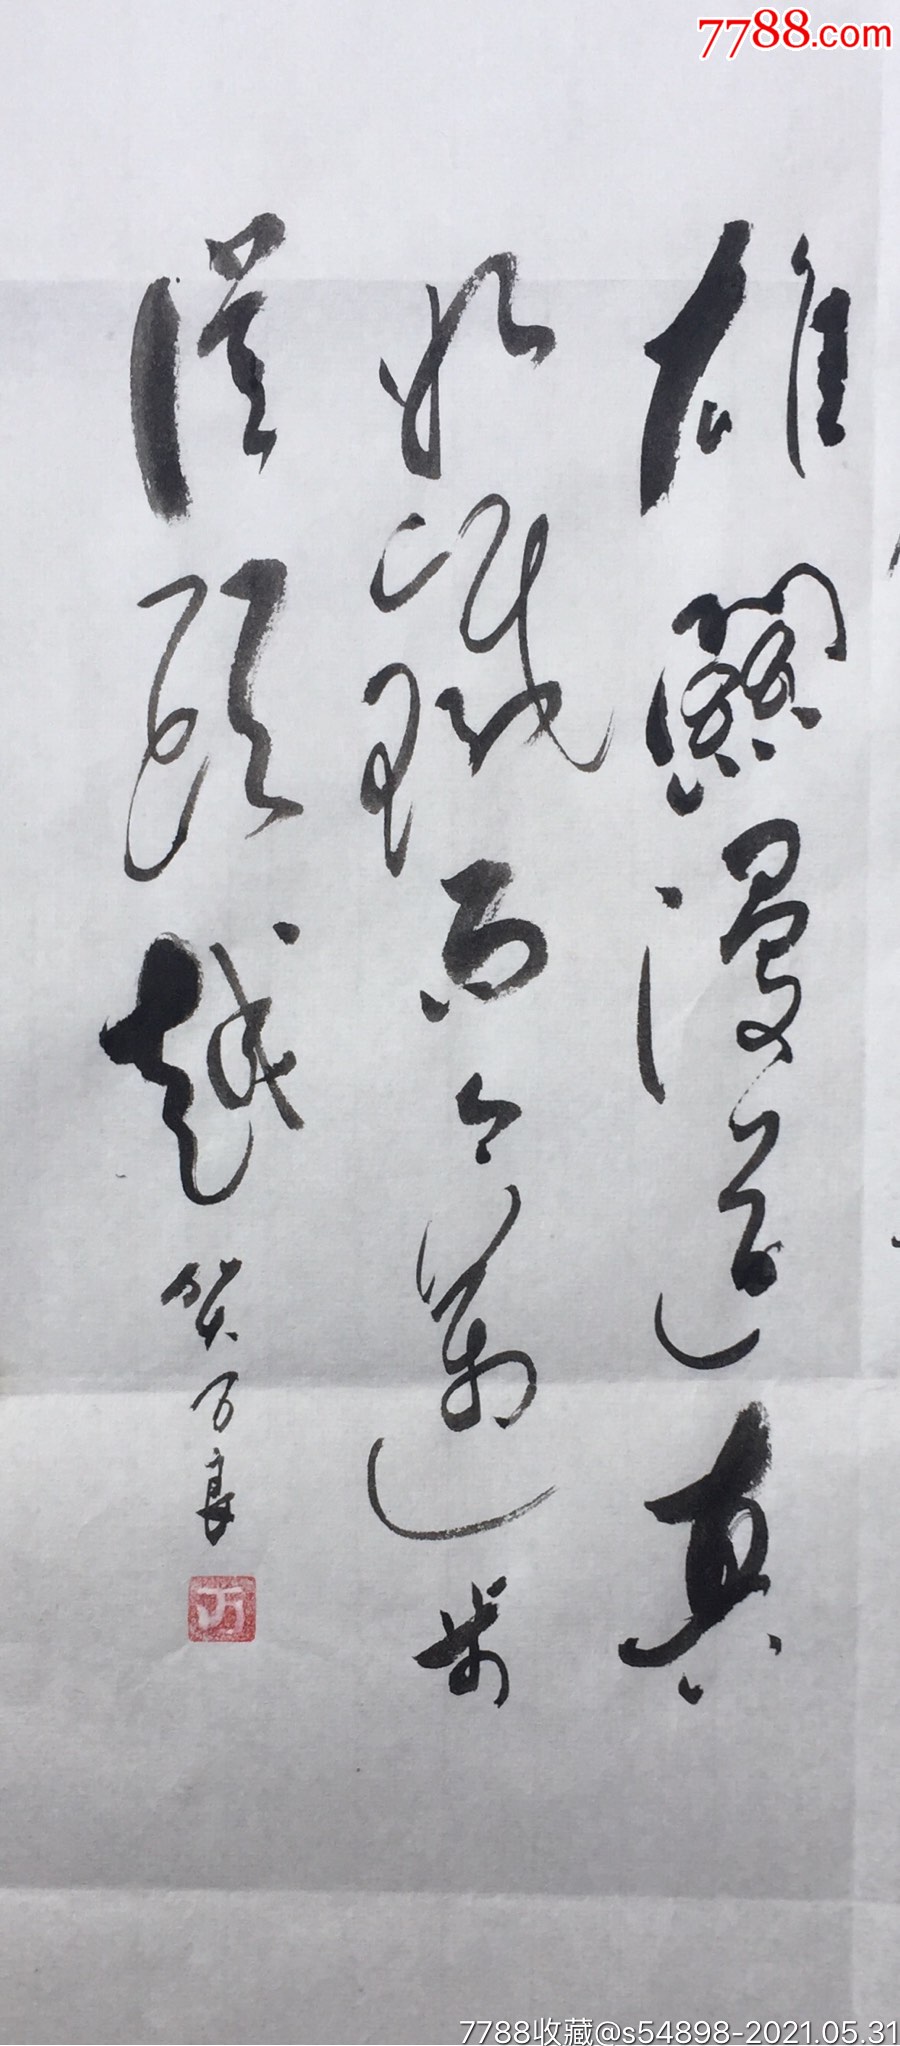 7788.com
雄關漫道真
如鐵而今邁步
從頭越
贺万良
7788收藏@s54898-2021.05.31